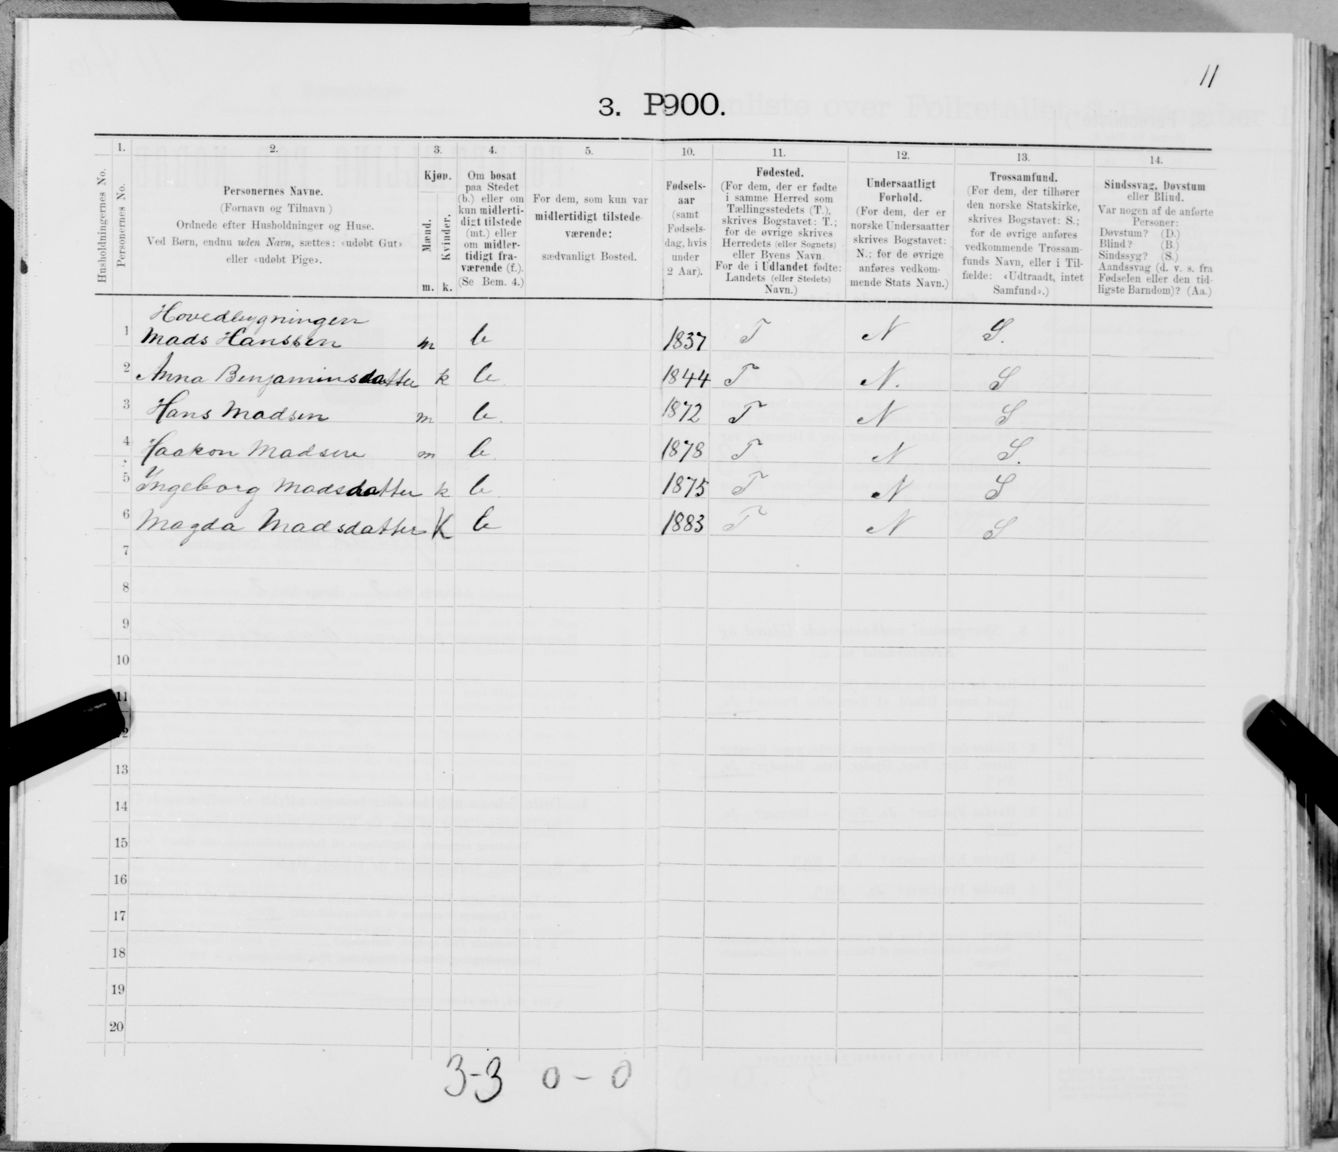 11
3. P900.
1. 2. 3. 4. 5. 10. 11. 12. 13. 14.
Husholdningernes No.
Personernes No.
Personernes Navne.
(Fornavn og Tilnavn)
Ordnede efter Husholdninger og Huse.
Ved Børn, endnu uden Navn, sættes: «udøbt Gut»
eller «udøbt Pige».
Kjøn.
Mænd.
Kvinder.
m. k.
Om bosat
paa Stedet
(b.) eller om
kun midlerti-
digt tilstede
(mt.) eller
om midler-
tidigt fra-
værende (f.).
(Se Bem. 4.)
For dem, som kun var
midlertidigt tilstede-
værende:
sædvanligt Bosted.
Fødsels-
aar
(samt
Fødsels-
dag, hvis
under
2 Aar).
Fødested.
(For dem, der er fødte
i samme Herred som
Tællingsstedets (T.),
skrives Bogstavet: T.;
for de øvrige skrives
Herredets (eller Sognets)
eller Byens Navn.
For de i Udlandet fødte:
Landets (eller Stedets)
Navn.)
Undersaatligt
Forhold.
(For dem, der er
norske Undersaatter
skrives Bogstavet:
N.; for de øvrige
anføres vedkom-
mende Stats Navn.)
Trossamfund.
(For dem, der tilhører
den norske Statskirke,
skrives Bogstavet: S.;
for de øvrige anføres
vedkommende Trossam-
funds Navn, eller i Til-
fælde: «Udtraadt, intet
Samfund».)
Sindssvag, Døvstum
eller Blind.
Var nogen af de anførte
Personer:
Døvstum? (D.)
Blind? (B.)
Sindssyg? (S.)
Aandssvag (d. v. s. fra
Fødselen eller den tid-
ligste Barndom)? (Aa.)
Hovedbygningen
1 Mads Hanssen m b 1837 T N S.
2 Anna Benjaminsdatter k b. 1844 T N. S
3 Hans Madsen m b. 1872 T N S
4 Haakon Madsen m b 1878 T N S.
5 Ingeborg Madsdatter k b. 1875 T N S
6 Magda Madsdatter K b 1883 T N S
7
8
9
10
11
12
13
14
15
16
17
18
19
20
3-3 0-0